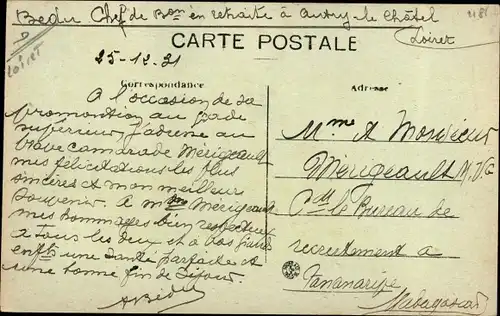 Bedu Chef de Bon en retraite à Autry-le-Châtel
Loiret
CARTE POSTALE
25-12-31
Correspondance
Adresse
A l'occasion de sa
promotion au grade
supérieur j'adresse au
brave camarade Mérigeault
mes félicitations les plus
sincères et mon meilleur
souvenir. A Mme Mérigeault
mes hommages bien respectueux
A tous les deux et à vos
enfts une Santé parfaite et
une bonne fin de séjour.
ABedu
Mme & Monsieur
Merigeault
Cdt le Bureau de
recrutement à
Tananarive
Madagascar